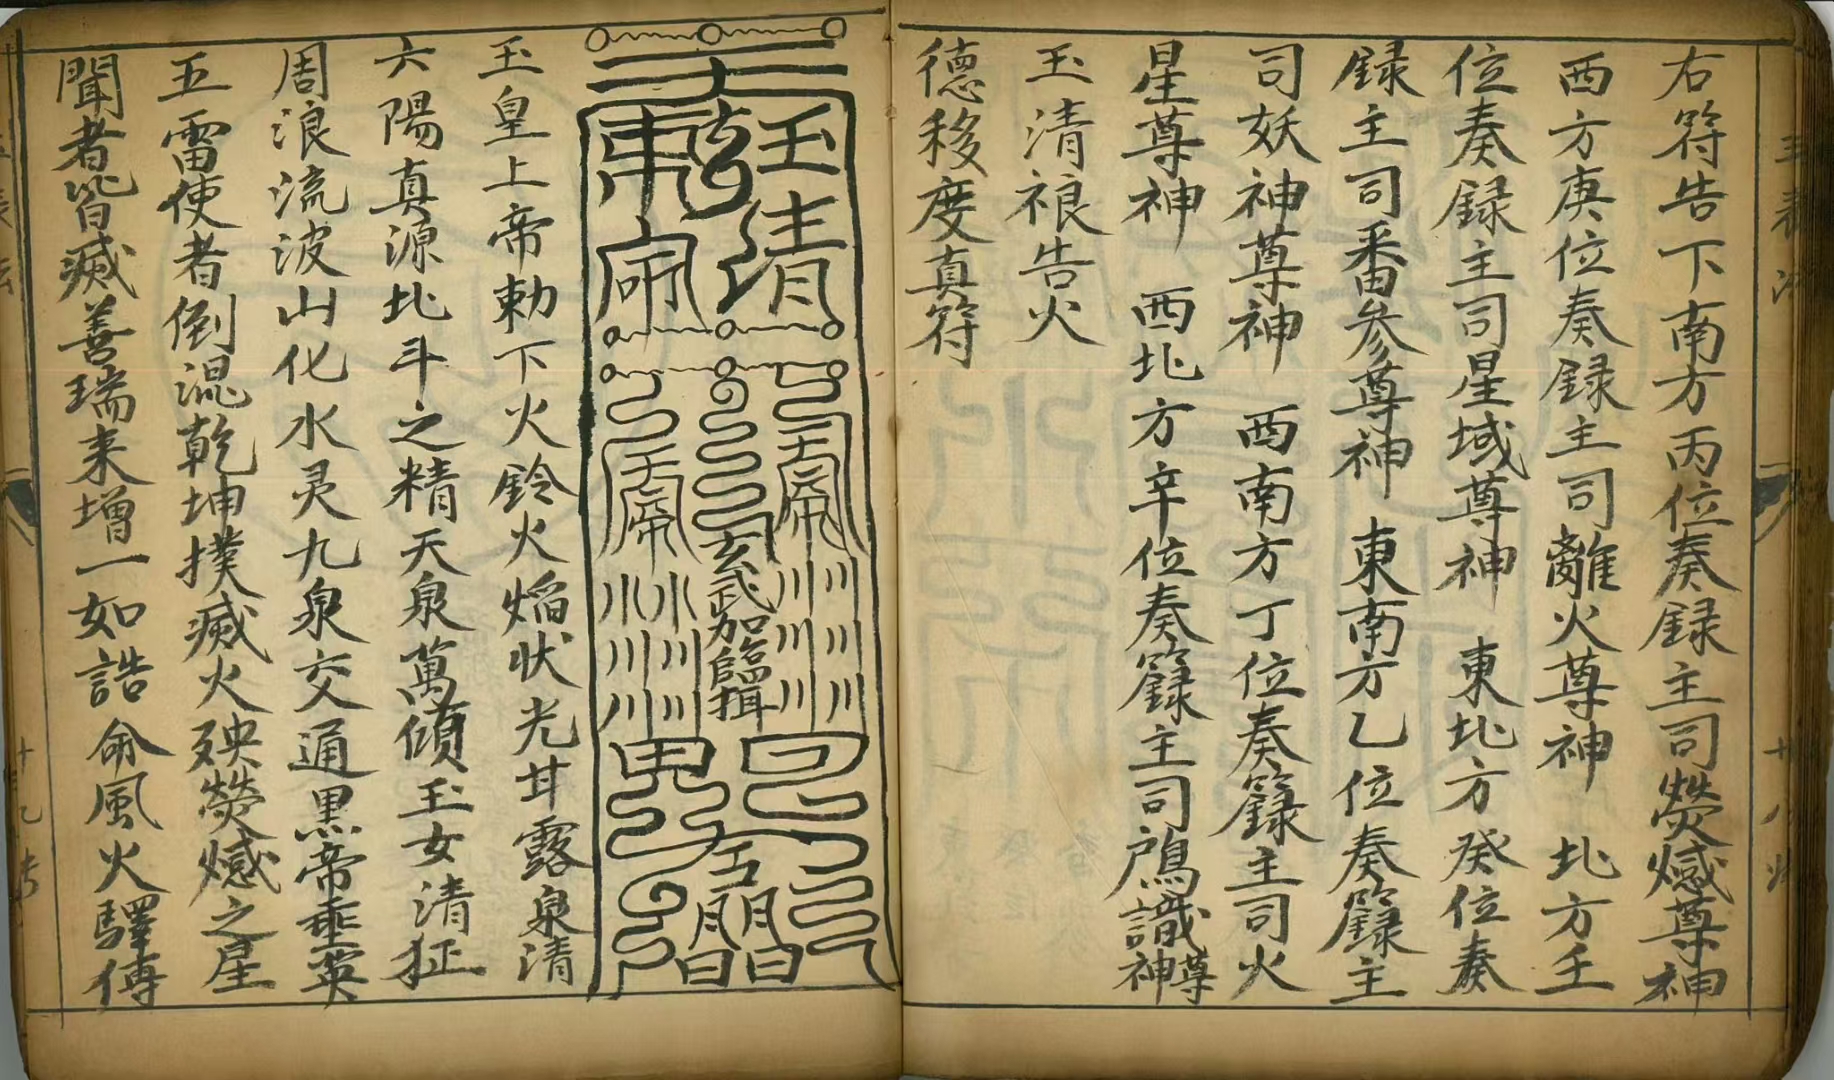 右符告下南方丙位奏録主司熒惑尊神
西方庚位奏録主司離火尊神 北方壬
位奏録主司星域尊神 東北方癸位奏
録主司番參尊神 東南方乙位奏籙主
司妖神尊神 西南方丁位奏籙主司火
星尊神 西北方辛位奏籙主司鴈識尊神
玉清祲告火
德移度真符
玉清
乾
東府
玄武加臨揖
玉皇上帝勅下火鈴火焰状光甘露泉清
六陽真源北斗之精天泉萬傾玉女清征
周浪流波山化水灵九泉交通黒帝垂英
五雷使者倒混乾坤撲滅火殃熒憾之星
聞者皆滅善瑞来增一如誥命風火驛傳